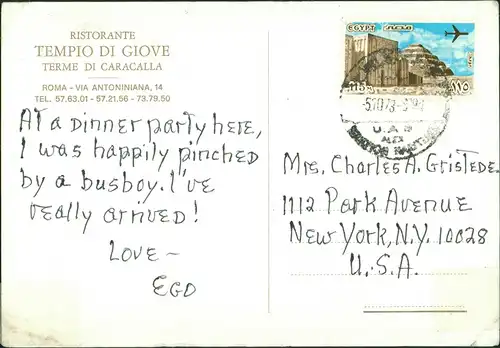 RISTORANTE
TEMPIO DI GIOVE
TERME DI CARACALLA
ROMA - VIA ANTONINIANA, 14
TEL. 57.63.01 - 57.21.56 - 73.79.50
EGYPT
115
١١٥
U.A.R
At a dinner party here,
I was happily pinched
by a busboy. I've
really arrived!
Love –
EGO
Mrs. Charles A. Gristede
1112 Park Avenue
New York, N.Y. 10028
U.S.A.